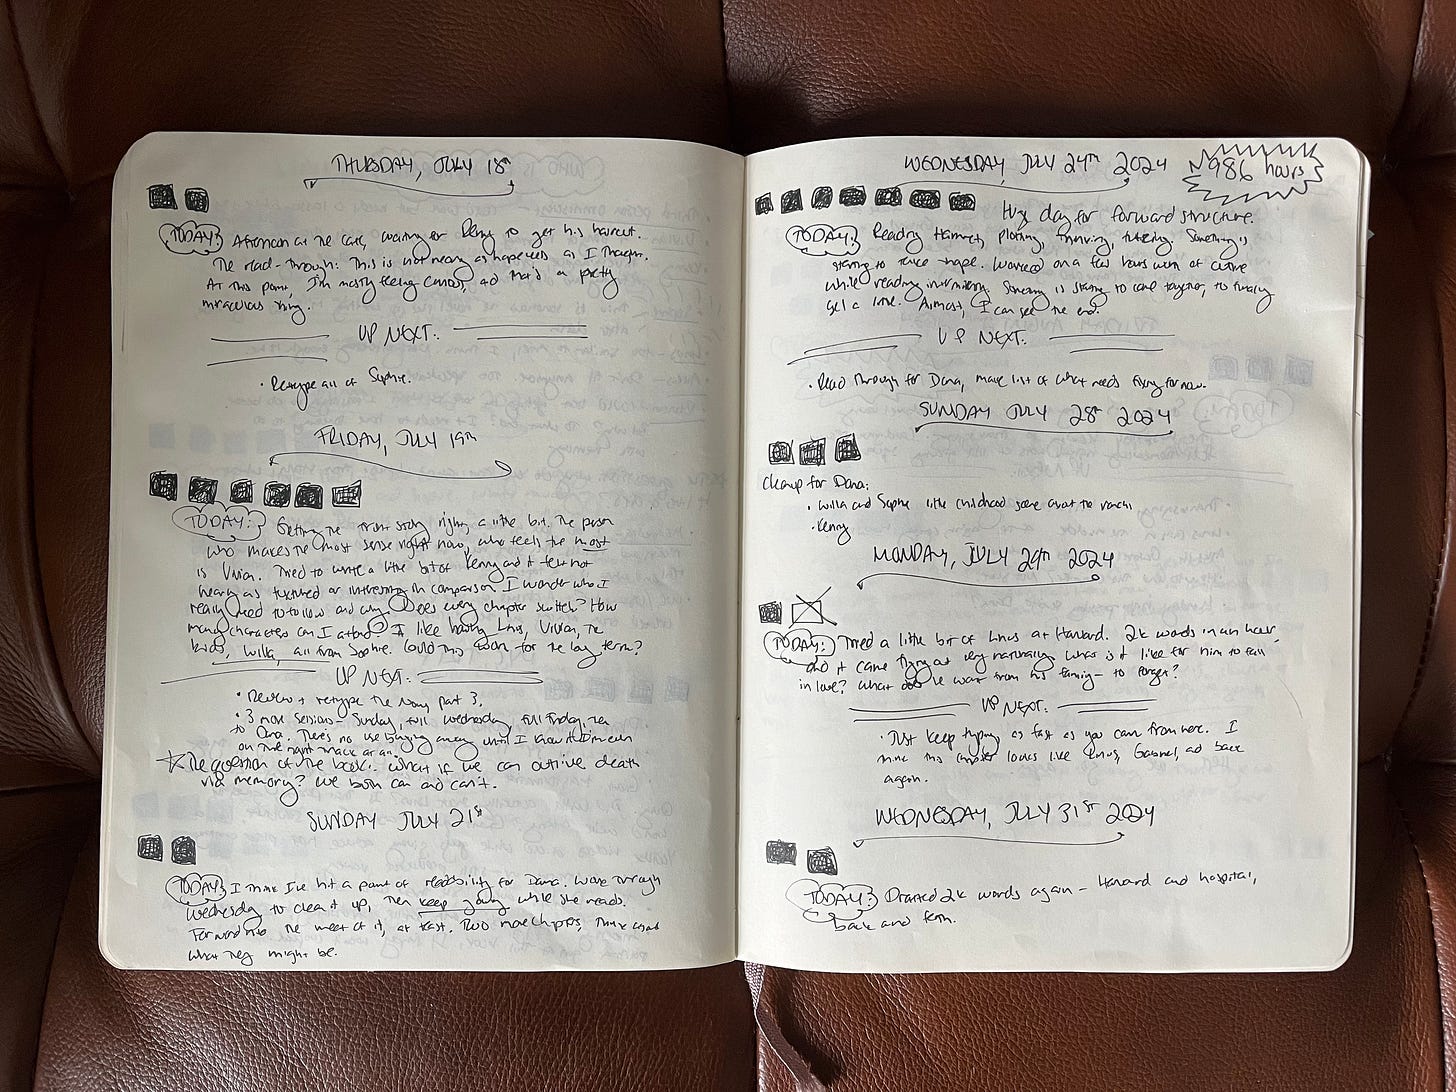 THURSDAY, JULY 18th
TODAY: Afternoon at the cafe, waiting for to get his haircut.
The read-through: This is not nearly as hopeless as I thought.
At this point, I'm mostly feeling curious, and that's a pretty
miraculous thing.
UP NEXT:
• Retype all of Sophie.
FRIDAY, JULY 19th
TODAY: Getting the story right, a little bit. The person
who makes the most sense right now, who feels the most
is Vivian. Tried to write a little bit of Kenny and it felt not
nearly as textured or interesting in comparison. I wonder who I
really need to follow and why. Does every chapter switch? How
many characters can I attend? I like having Linus, Vivian, the
kids, Willa, all from Sophie. Could this for the long term?
UP NEXT:
• Review + retype the Part 3.
• 3 more sessions – Sunday, full Wednesday, full Friday, then
to Dana. There's no use until I know I'm even
on the right track at all.
☆ The question of the book: what if we can outlive death
via memory? We both can and can't.
SUNDAY JULY 21st
TODAY: I think I've hit a point of readability for Dana. Work through
Wednesday to clean it up, then keep going while she reads.
Forward into the meat of it, at last. Two more chapters, think about
what they might be.
WEDNESDAY, JULY 24th 2024
986 hours
Huge day for forward structure.
TODAY: Reading Hamnet, plotting, thinking, tutoring. Something is
starting to take shape. Worked on a few hours worth of
while reading Something is starting to come together, to finally
gel a little. Almost, I can see the end.
UP NEXT:
• Read through for Dana, make list of what needs fixing for now.
SUNDAY JULY 28th 2024
Cleanup for Dana:
• Willa and Sophie little childhood scene about the ranch
• Kenny
MONDAY, JULY 29th 2024
TODAY: Tried a little bit of Linus at Harvard. 2k words in an hour,
and it came flying out very naturally. What is it like for him to fall
in love? What does he want from his family – to forget?
UP NEXT:
• Just keep typing as fast as you can from here. I
think this chapter looks like Linus, Gabriel, and back
again.
WEDNESDAY, JULY 31st 2024
TODAY: Drafted 2k words again – Harvard and hospital,
back and forth.